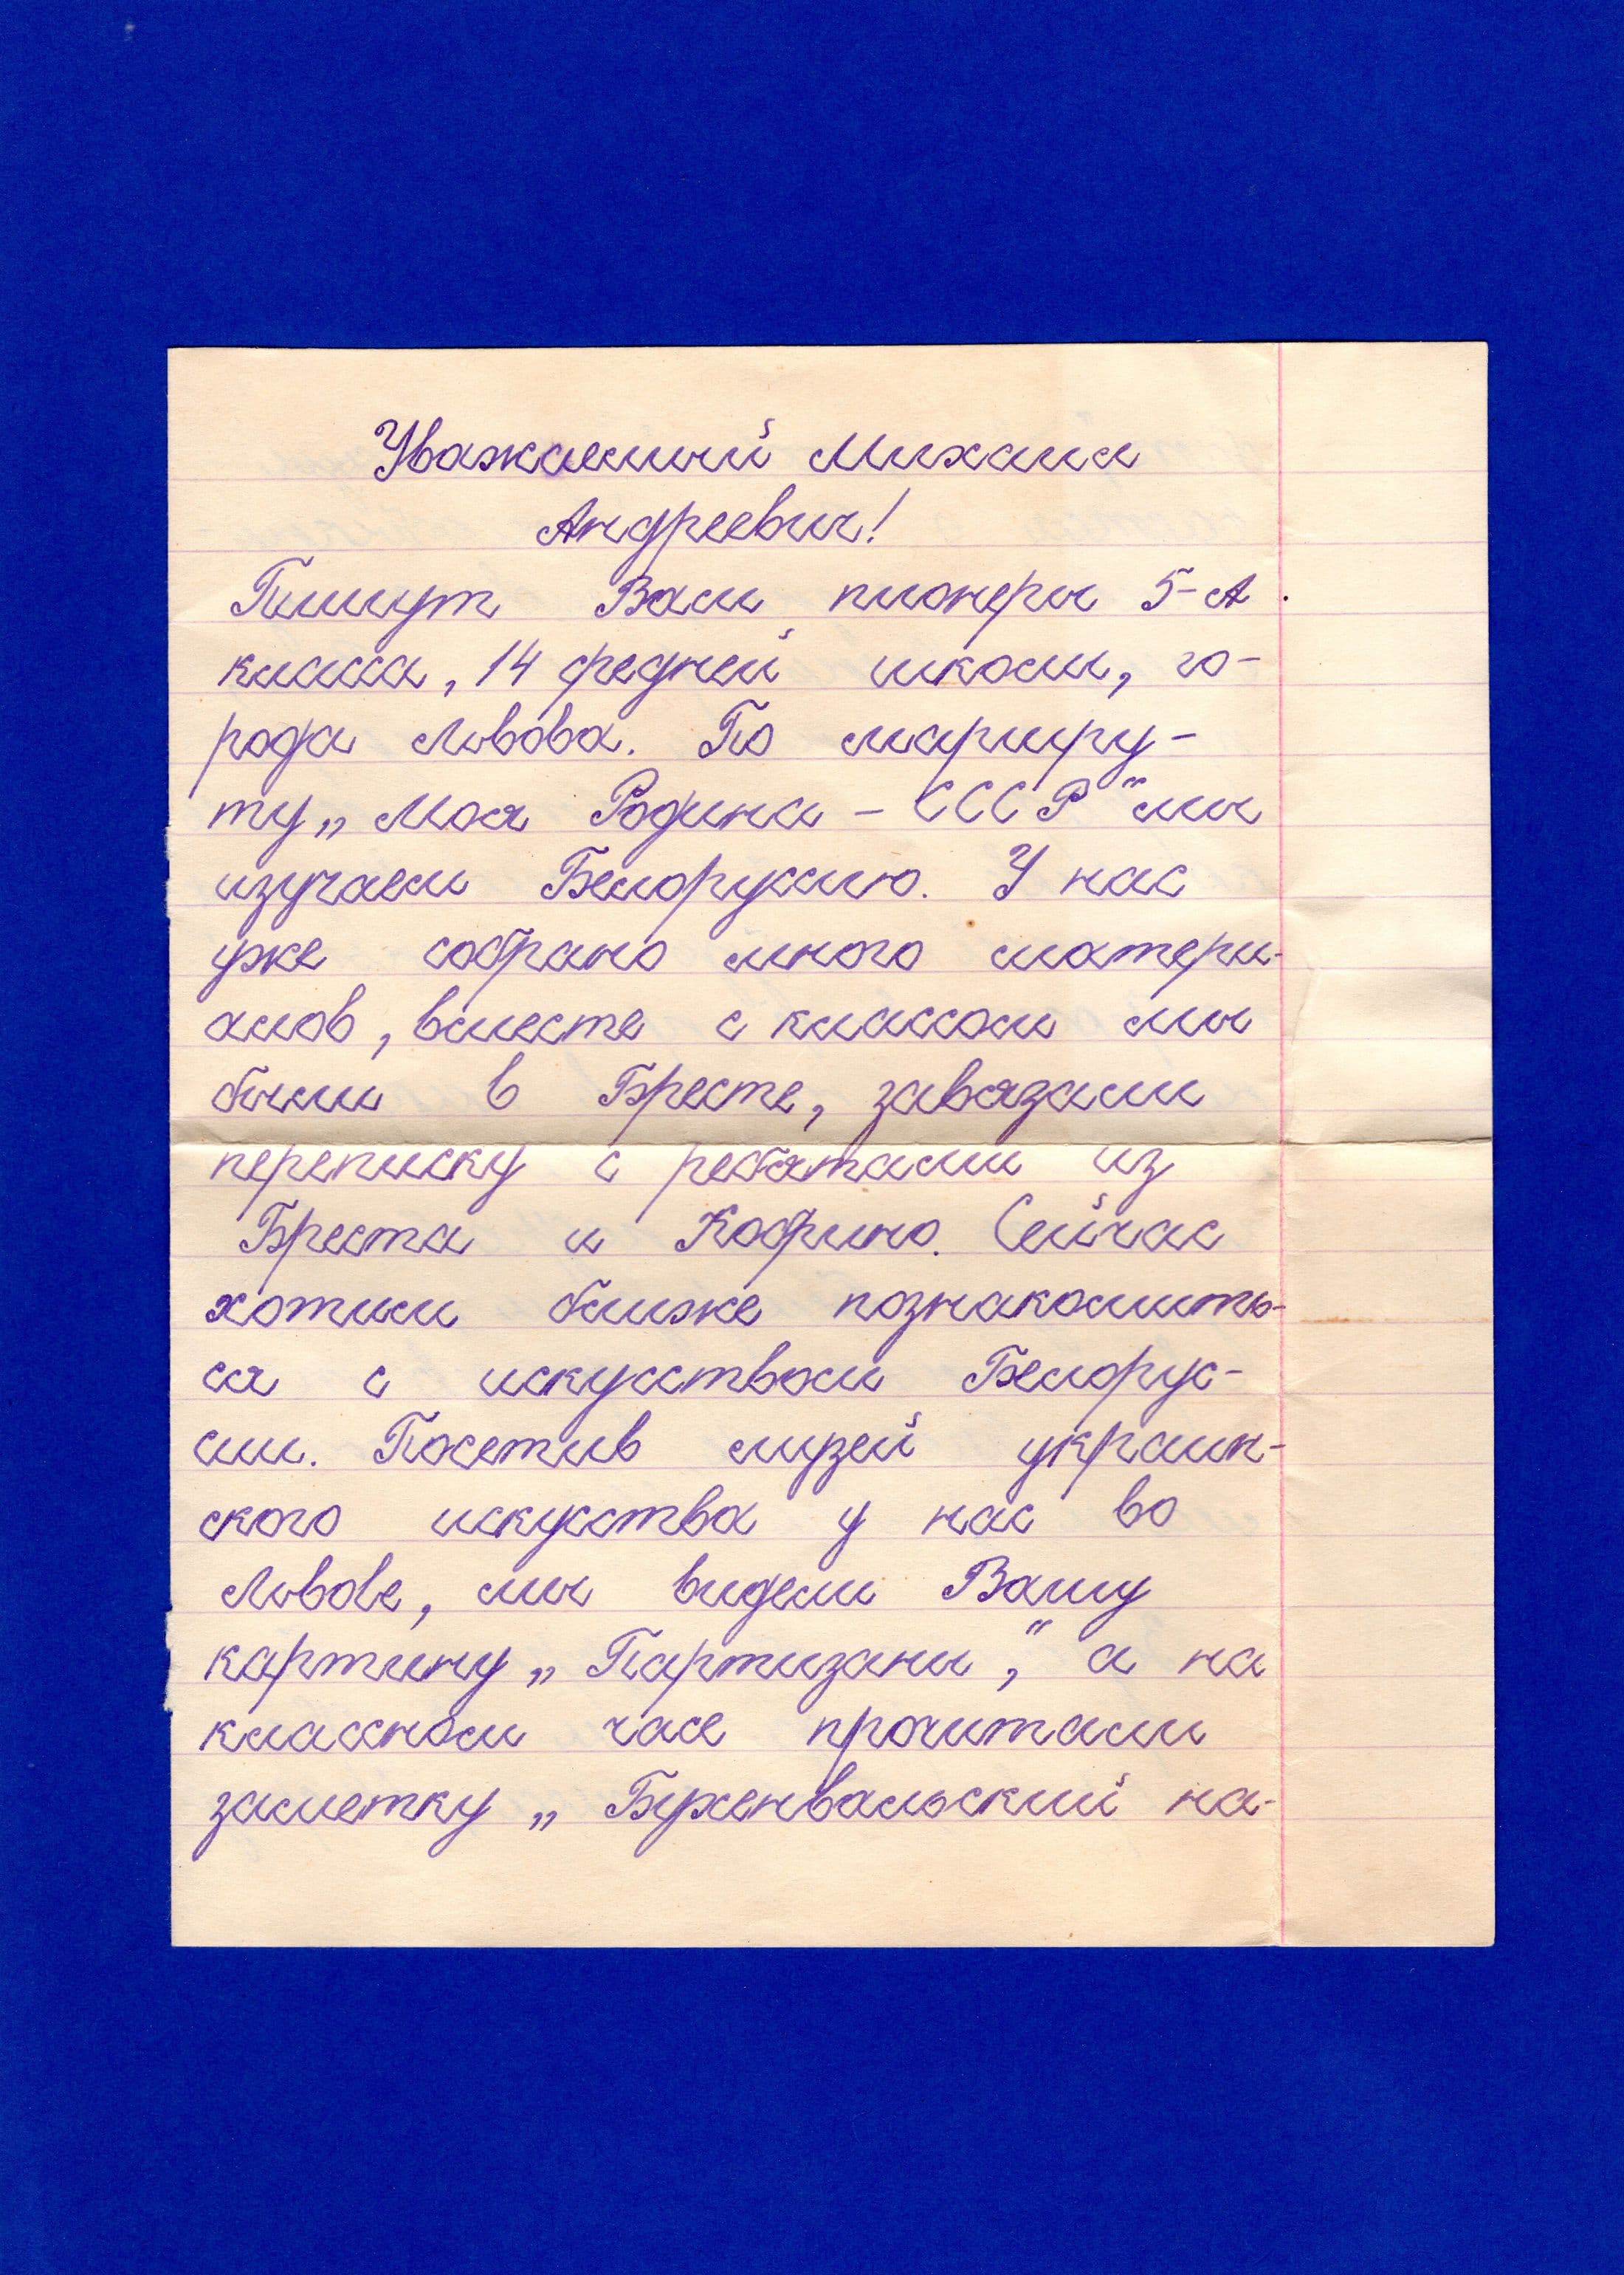 Уважаемый Михаил
Андреевич!
Пишут Вам пионеры 5-А
класса, 14 средней школы, го-
рода Львова. По маршру-
ту „Моя Родина – СССР" мы
изучаем Белоруссию. У нас
уже собрано много матери-
алов, вместе с классом мы
были в Бресте, завязали
переписку с ребятами из
Бреста и Кобрино. Сейчас
хотим ближе познакомить-
ся с искусством Белорус-
сии. Посетив музей украин-
ского искусства у нас во
Львове, мы видели Вашу
картину „Партизаны", а на
классном часе прочитали
заметку „Бухенвальский на-